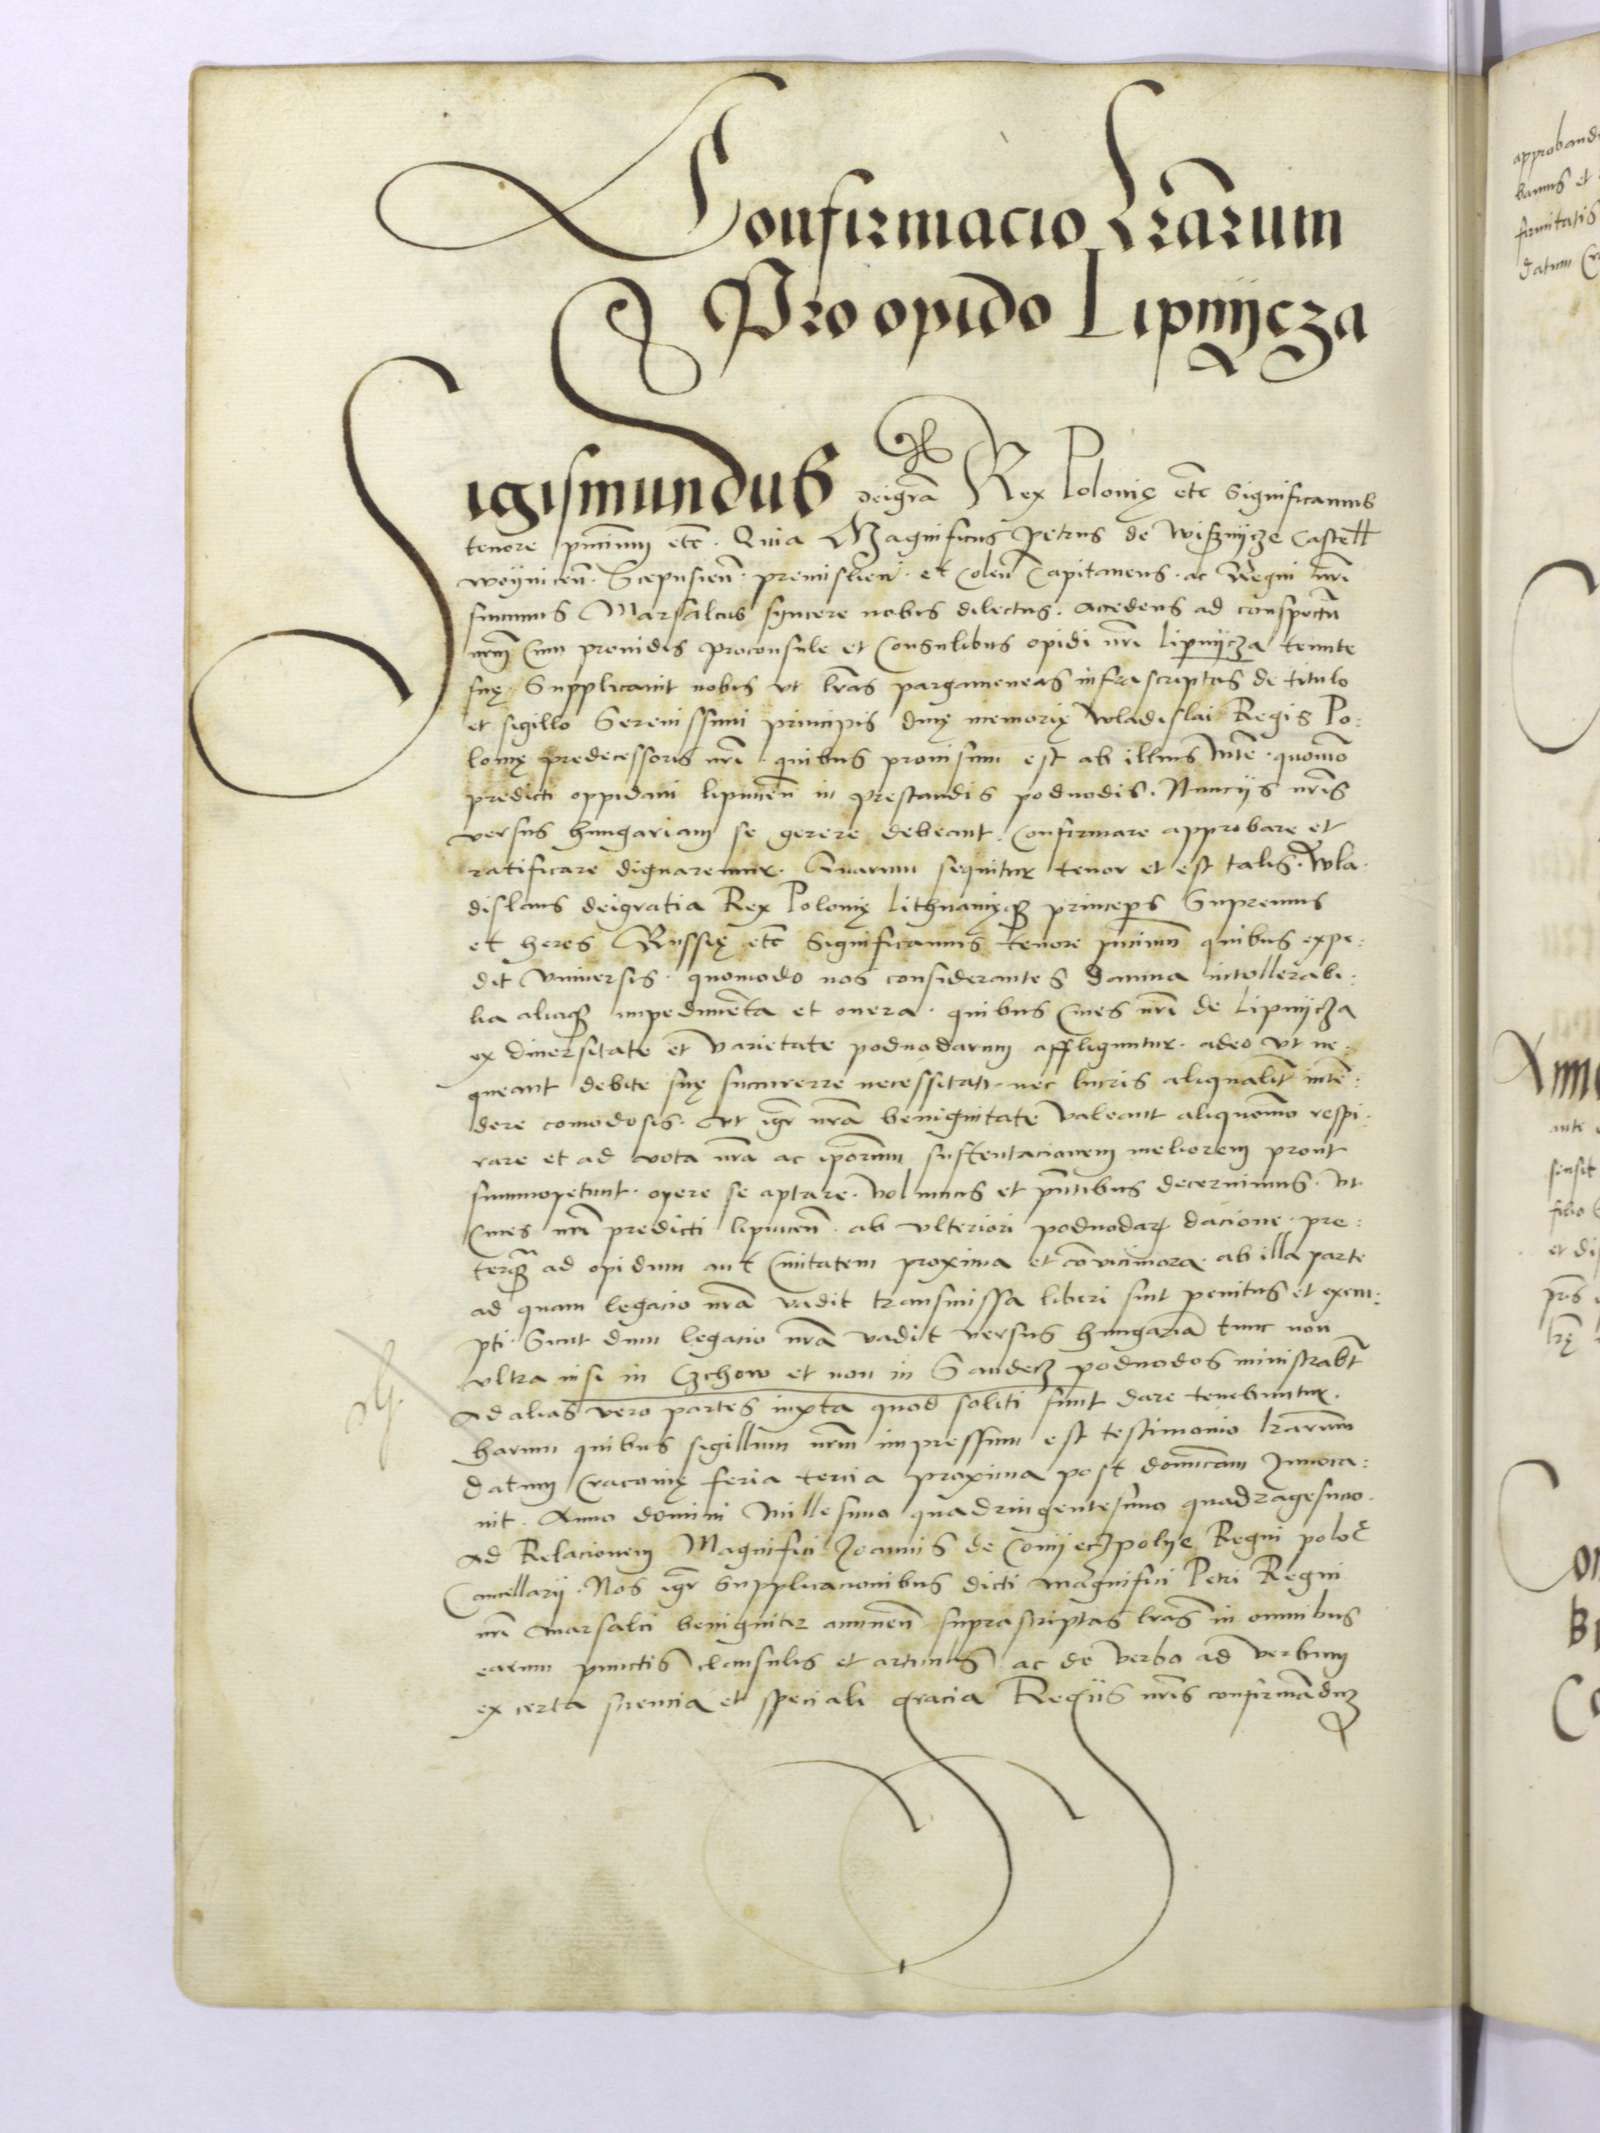 Confirmacio Lrarum
Pro opido Lipnycza
Sigismundus dei gra Rex Polonię etc Significamus
tenore pncium etc. Quia Magnificus Petrus de Wisznycze Castell
woynicen. Scepusien. premislien. et Colen Capitaneus. ac Regni nri
summus Marsalcus syncere nobis dilectus. Accedens ad conspectu
nrm Cum prouidis proconsule et Consulibus opidi nri Lipnycza tenute
suę. Supplicauit nobis vt lras pargameneas infrascriptas de titulo
et sigillo Serenissimi principis diuę memorię wladislai Regis Po:
lonię predecessoris nri. quibus prouisum est ab illius Mte. quomo
predicti oppidani lipnicen in prestandis poduodis. Nuncijs nris
versus hungariam se gerere debeant. Confirmare approbare et
ratificare dignaremur. Quarum sequitur tenor et est talis. Wla.
dislaus dei gratia Rex Polonię Lithuanięq princeps Supremus
et heres Russię etc Significamus tenore pncium quibus expe:
dit vniuersis. quomodo nos considerantes damna intollerabi:
lia aliaq impedimenta et onera. quibus Ciues nri de Lipnycza
ex diuersitate et varietate poduodarum affliguntur. adeo vt ne.
queant debite suę succurerre necessitati. nec lucris aliqualit inte:
dere comodosis. Vt igr nra benignitate valeant aliquomo respi.
rare et ad vota nra ac iporum sustentacionem meliorem prout
summopetunt. opere se aptare. volumus et pntibus decernimus. vt
Ciues nri predicti lipnicen. ab vlteriori poduodar dacione. pre:
terq ad opidum aut Ciuitatem proxima et couiciniora. ab illa parte
ad quam legacio nra vadit transmissa liberi sint penitus et exem:
pti. Sicut dum legacio nra vadit versus hungaria tunc non
vltra nisi in Czchow et non in Sandecz poduodos ministrabt
Ad alias vero partes iuxta quod soliti sunt dare tenebuntur.
harum quibus sigillum nrm impressum est testimonio lrarum
datum Cracouię feria tercia proxima post domicam Inuoca:
uit. Anno domini Millesimo quadringentesimo quadragesimo.
Ad Relacionem Magnifici Joannis de Conyeczpolye Regni polo
Cancellarij. Nos igr supplicacionibus dicti magnifici Petri Regni
nri marsalci benigniter annuen suprascriptas lras in omnibus
earum punctis clausulis et articulis ac de verbo ad verbum
ex certa sciencia et speciali gracia Regijs nris confirmaduz
approband
bamus et
firmitatis
datum Cr